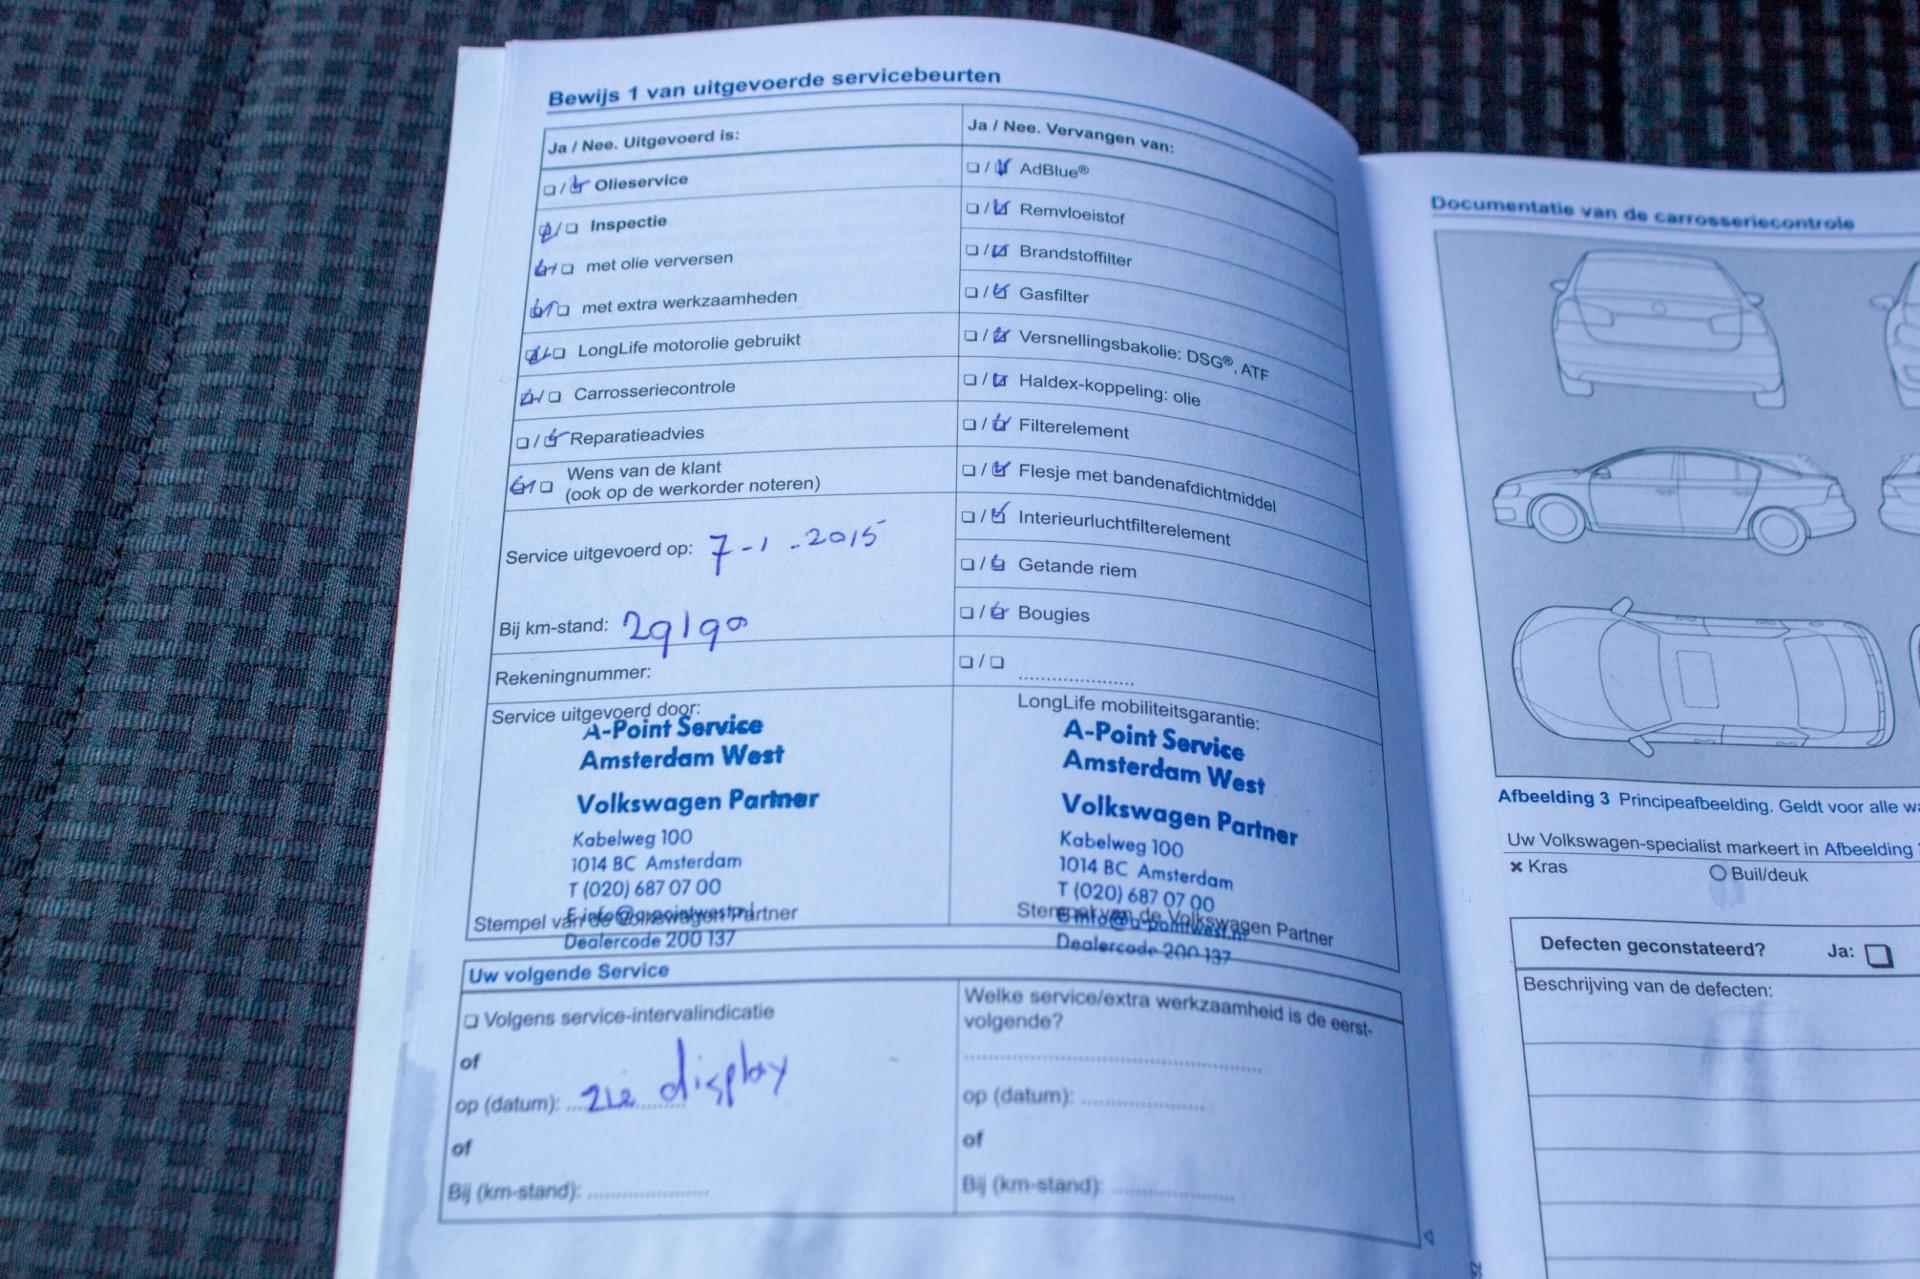 Bewijs 1 van uitgevoerde servicebeurten
Ja / Nee. Uitgevoerd is:
☐ / ☑ Olieservice
☑ / ☐ Inspectie
☑ / ☐ met olie verversen
☑ / ☐ met extra werkzaamheden
☑ / ☐ LongLife motorolie gebruikt
☑ / ☐ Carrosseriecontrole
☐ / ☑ Reparatieadvies
☑ / ☐ Wens van de klant
(ook op de werkorder noteren)
Service uitgevoerd op: 7-1-2015
Bij km-stand: 29190
Rekeningnummer:
Ja / Nee. Vervangen van:
☐ / ☑ AdBlue®
☐ / ☑ Remvloeistof
☐ / ☑ Brandstoffilter
☐ / ☑ Gasfilter
☐ / ☑ Versnellingsbakolie: DSG®, ATF
☐ / ☑ Haldex-koppeling: olie
☐ / ☑ Filterelement
☐ / ☑ Flesje met bandenafdichtmiddel
☐ / ☑ Interieurluchtfilterelement
☐ / ☑ Getande riem
☐ / ☑ Bougies
☐ / ☐ ....................
Service uitgevoerd door:
A-Point Service
Amsterdam West
Volkswagen Partner
Kabelweg 100
1014 BC Amsterdam
T (020) 687 07 00
E info@a-pointwest.nl
Stempel van de Volkswagen Partner
Dealercode 200 137
LongLife mobiliteitsgarantie:
A-Point Service
Amsterdam West
Volkswagen Partner
Kabelweg 100
1014 BC Amsterdam
T (020) 687 07 00
E info@a-pointwest.nl
Stempel van de Volkswagen Partner
Dealercode 200 137
Uw volgende Service
☐ Volgens service-intervalindicatie
of
op (datum): zie display
of
Bij (km-stand): ....................
Welke service/extra werkzaamheid is de eerst-
volgende?
....................
op (datum): ....................
of
Bij (km-stand): ....................
Documentatie van de carrosseriecontrole
Afbeelding 3 Principeafbeelding. Geldt voor alle
Uw Volkswagen-specialist markeert in Afbeelding
× Kras
○ Buil/deuk
Defecten geconstateerd? Ja: ☐
Beschrijving van de defecten: